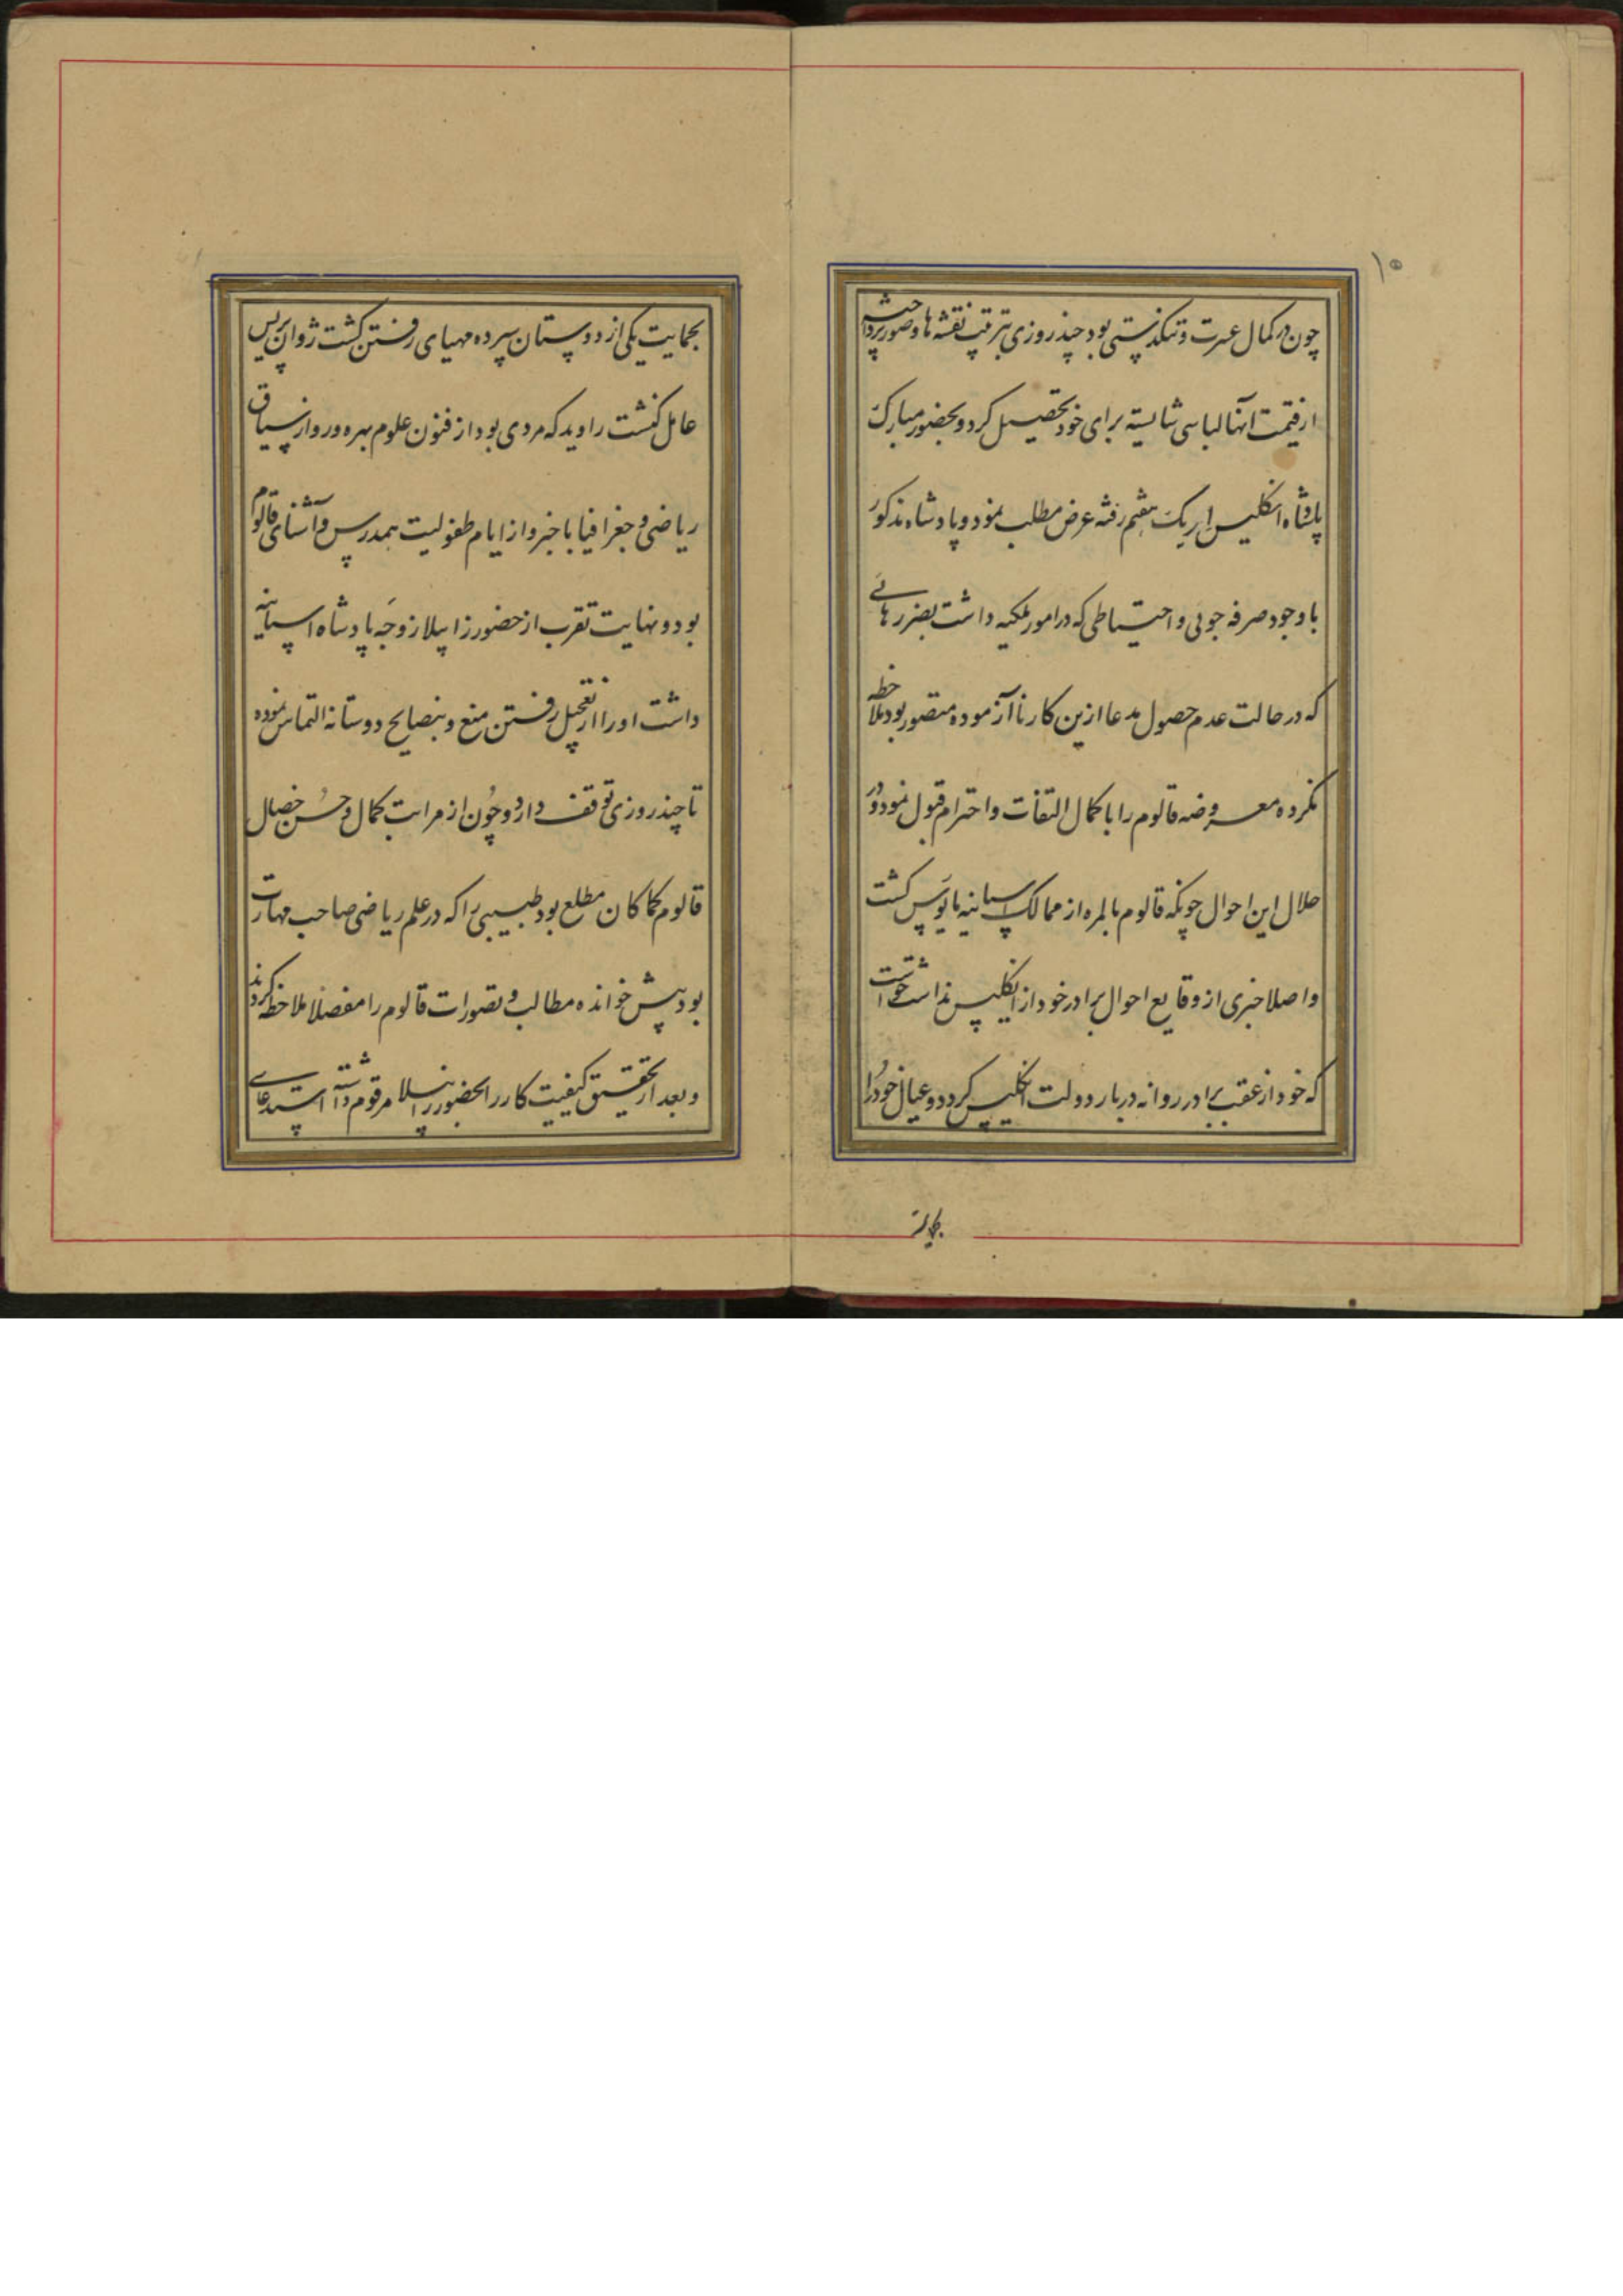 ۱۵
چون در کمال عسرت و تنکدستی بود چند روزی بترتیب نقشه ها و صور پرداخته
از قیمت آنها لباسی شایسته برای خود تحصیل کرد و بحضور مبارک
پادشاه انکلیس هفتم رفته عرض مطلب نمود و پادشاه مذکور
با وجود صرفه جوئی و احتیاطی که در امور ملکیه داشت بضررهائی
که در حالت عدم حصول مدعا ازین کار ناآزموده متصور بود ملاحظه
نکرده معروضه قالوم را با کمال التفات و احترام قبول نمود و در
خلال این احوال چونکه قالوم بالمره از ممالک اسپانیه مایوس کشت
و اصلا خبری از وقایع احوال برادر خود از انکلیس نداشت خواست
که خود از عقب برادر روانه دربار دولت انکلیس کردد و عیال خود را
بحمایت یکی از دوستان سپرده مهیای رفتن کشت ژوان پریس
عامل کنشت را دید که مردی بود از فنون علوم بهره ور و از سیاق
ریاضی و جغرافیا باخبر و از ایام طفولیت همدرس و آشنای قالوم
بود و نهایت تقرب از حضور زابیلا زوجه پادشاه اسپانیه
داشت او را از تعجیل رفتن منع و بنصایح دوستانه التماس نموده
تا چند روزی توقف دارد و چون از مراتب کمال و حسن خصال
قالوم کماکان مطلع بود طبیبی را که در علم ریاضی صاحب مهارت
بود پیش خوانده مطالب و تصورات قالوم را مفصلا ملاحظه کردند
و بعد از تحقیق کیفیت کار را بحضور زابیلا مرقوم داشته استدعای